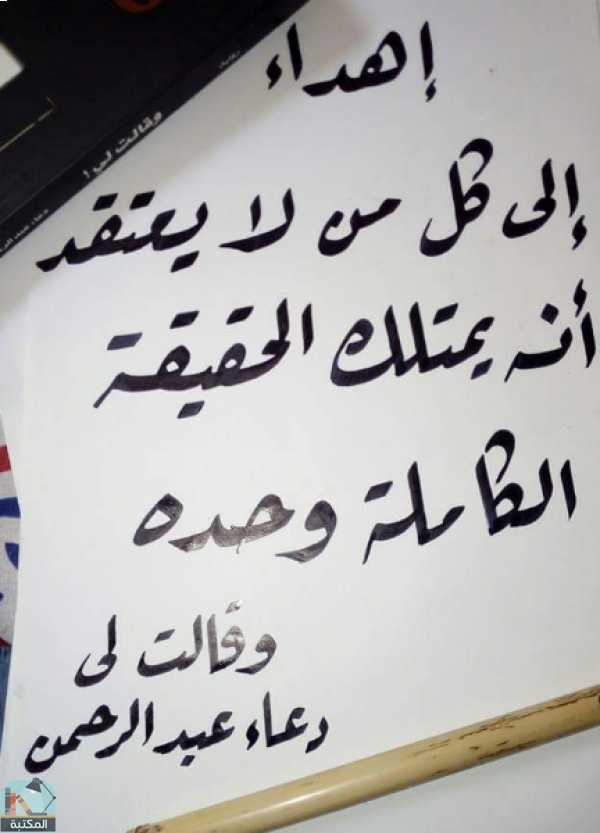 إهداء
إلى كل من لا يعتقد
أنه يمتلك الحقيقة
الكاملة وحده
وقالت لى
دعاء عبد الرحمن
وقالت لي !
المكتبة